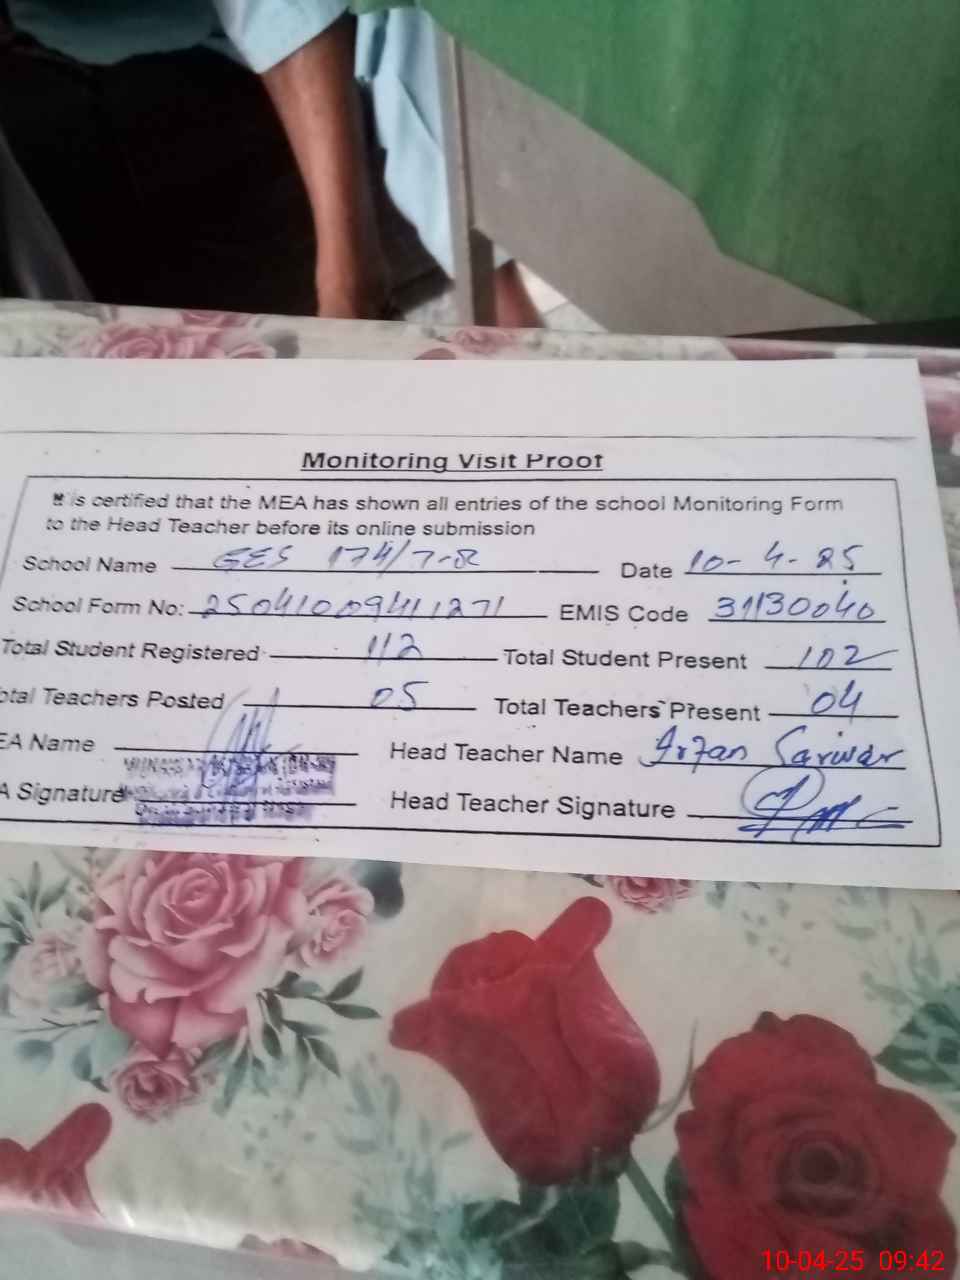 Monitoring Visit Proof
It is certified that the MEA has shown all entries of the school Monitoring Form
to the Head Teacher before its online submission
School Name GES 174/7-R Date 10-4-25
School Form No: 25041009411271 EMIS Code 31130040
Total Student Registered 112 Total Student Present 102
otal Teachers Posted 05 Total Teachers Present 04
EA Name Head Teacher Name Irfan Sarwar
A Signature Head Teacher Signature
10-04-25 09:42